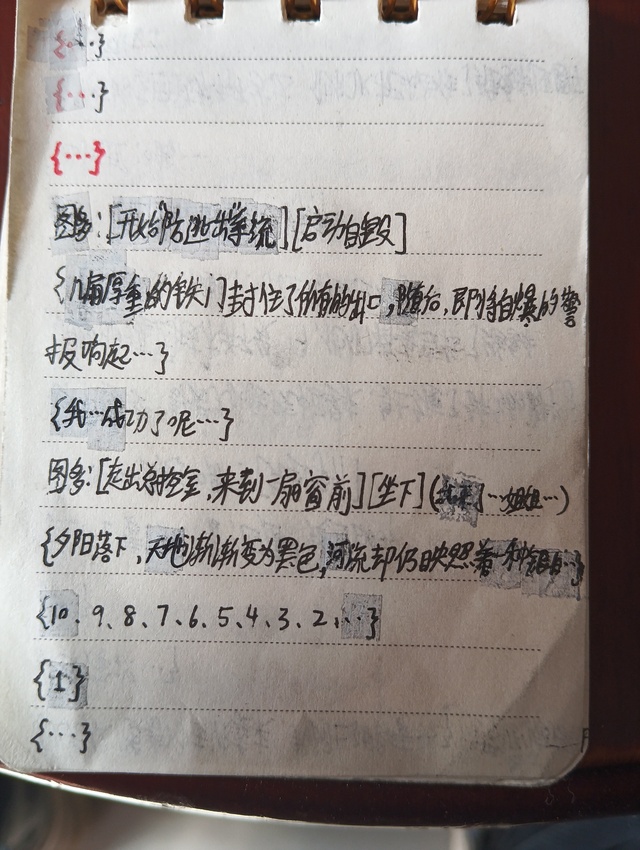 {…}
{…}
{…}
图多:[开始"防逃出"系统][启动自毁]
{几扇厚重的铁门封住了所有的出口,随后,即将自爆的警
报响起…}
{我…成功了呢…}
图多:[走出总控室,来到一扇窗前][坐下](…姐姐…)
{夕阳落下,天地渐渐变为黑色,河流却仍映照着一种
{10、9、8、7、6、5、4、3、2、…}
{1}
{…}